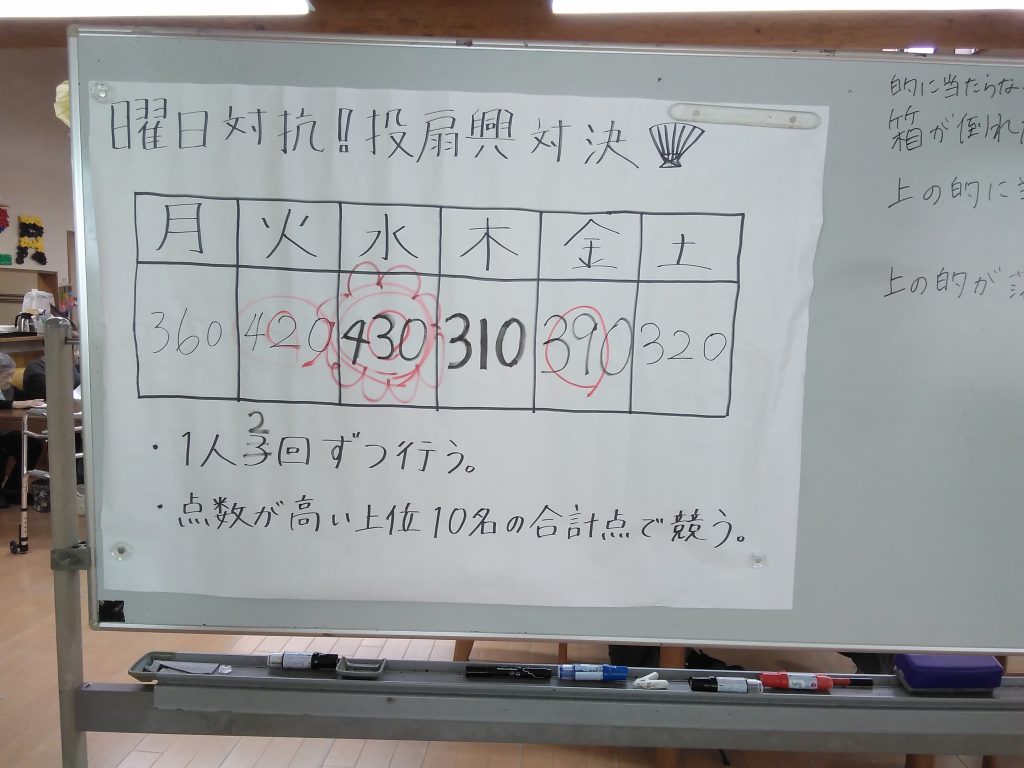 曜日対抗!!投扇興対決
月 火 水 木 金 土
360 420 430 310 390 320
2
・1人3回ずつ行う。
・点数が高い上位10名の合計点で競う。
的に当たらな
箱が倒れ
上の的に
上の的が